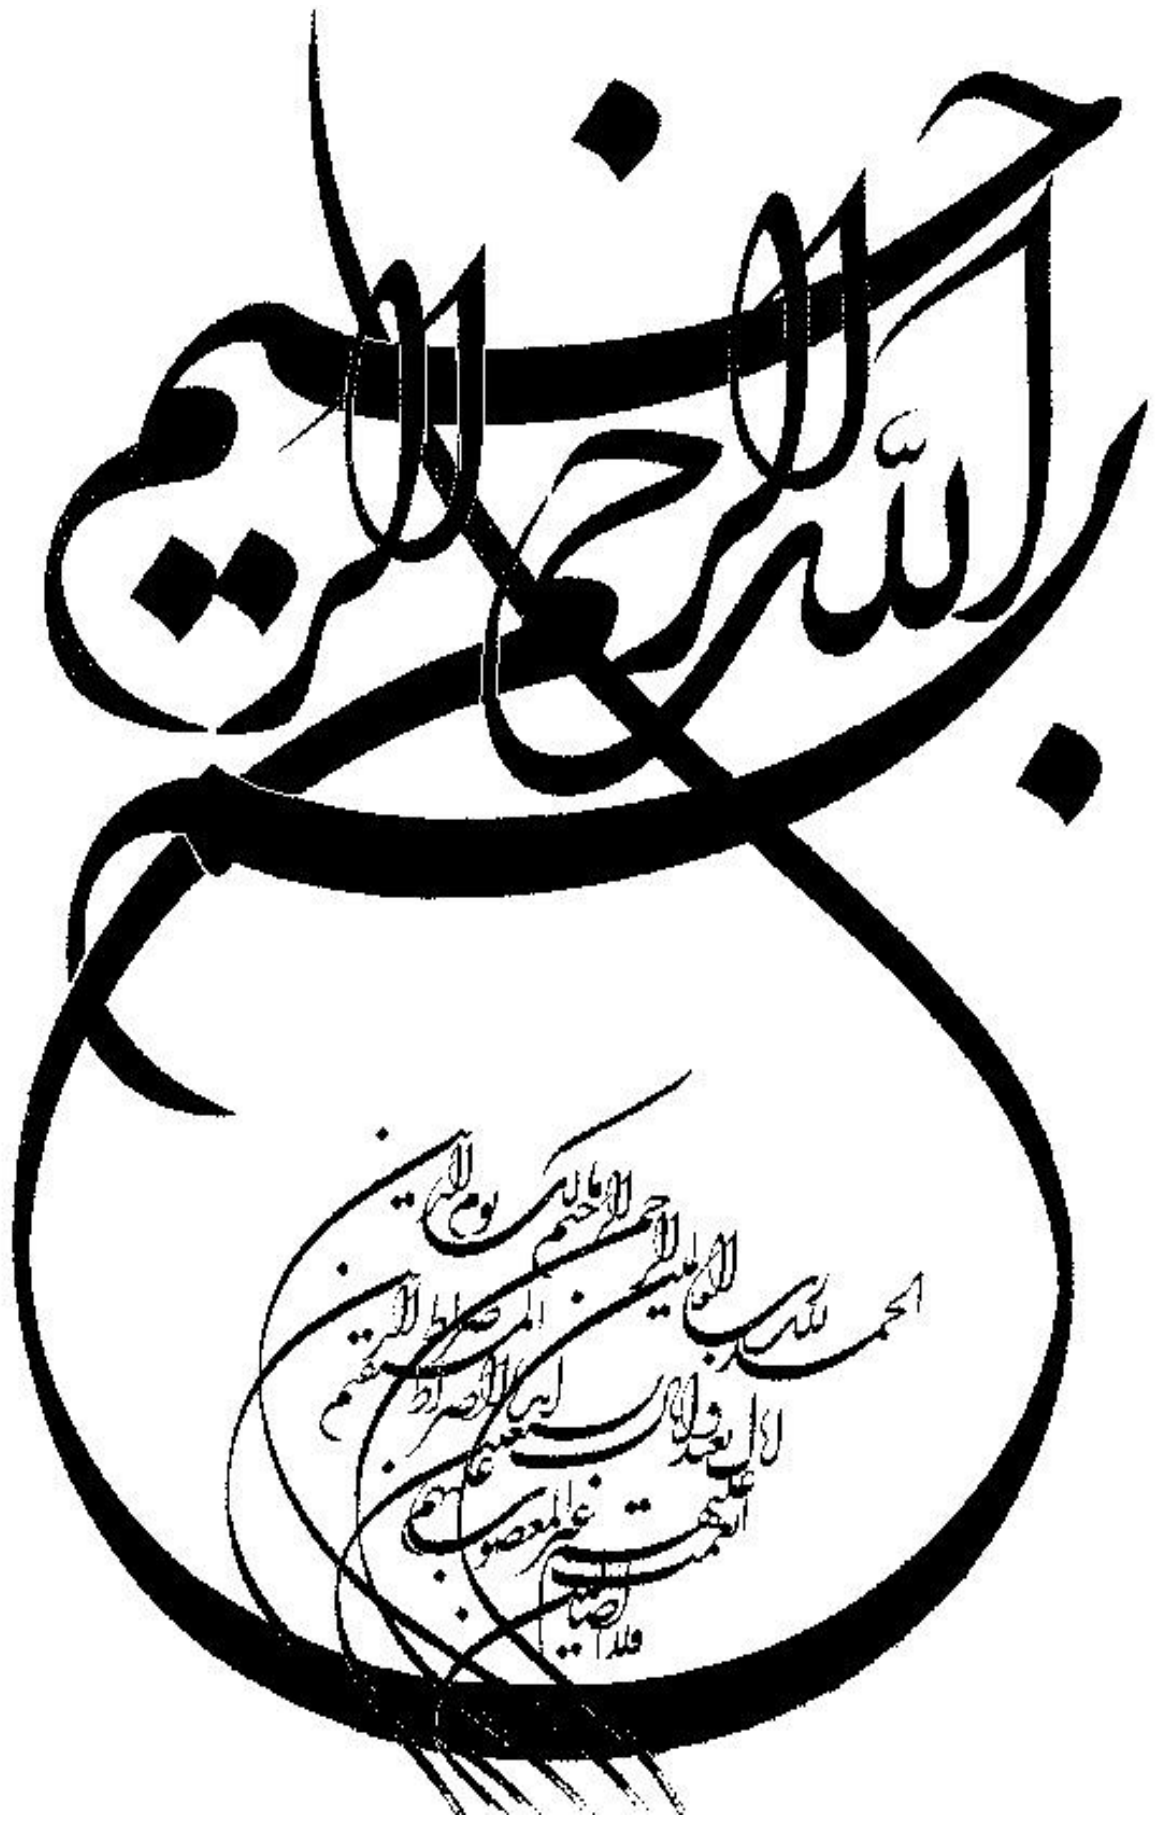 بسم الله الرحمن الرحيم
الحمد لله رب العالمين
الرحمن الرحيم مالك يوم الدين
اياك نعبد واياك نستعين
اهدنا الصراط المستقيم
صراط الذين
انعمت عليهم
غير المغضوب عليهم
ولا الضالين